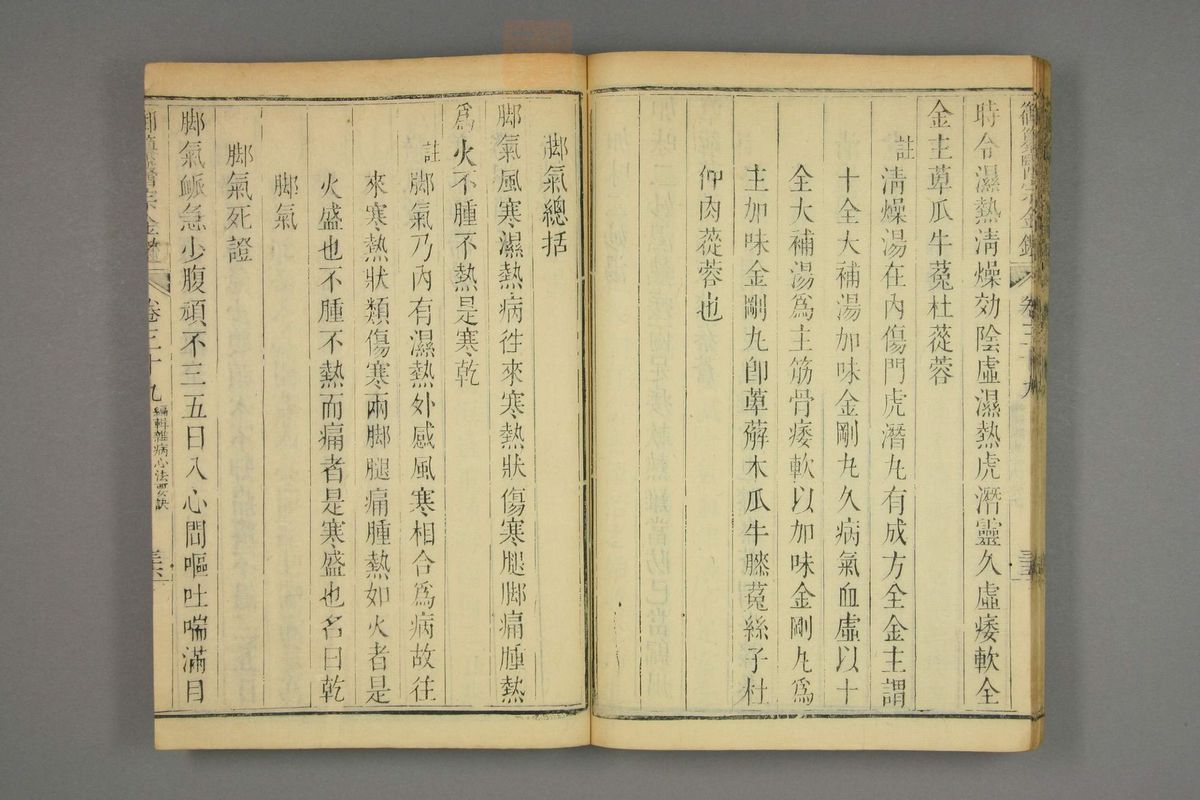 御纂醫宗金鑑 卷三十九
時令濕熱淸燥効陰虛濕熱虎潛靈久虛痿軟全
金主萆瓜牛菟杜蓯蓉
註
淸燥湯在內傷門虎潛丸有成方全金主謂
十全大補湯加味金剛丸久病氣血虛以十
全大補湯爲主筋骨痿軟以加味金剛丸爲
主加味金剛丸卽萆薢木瓜牛膝菟絲子杜
仲肉蓯蓉也
脚氣總括
脚氣風寒濕熱病徃來寒熱狀傷寒腿脚痛腫熱
爲火不腫不熱是寒乾
註
脚氣乃內有濕熱外感風寒相合爲病故往
來寒熱狀類傷寒兩脚腿痛腫熱如火者是
火盛也不腫不熱而痛者是寒盛也名曰乾
脚氣
脚氣死證
脚氣脈急少腹頑不三五日入心間嘔吐喘滿目
御纂醫宗金鑑 卷三十九 編輯雜病心法要訣